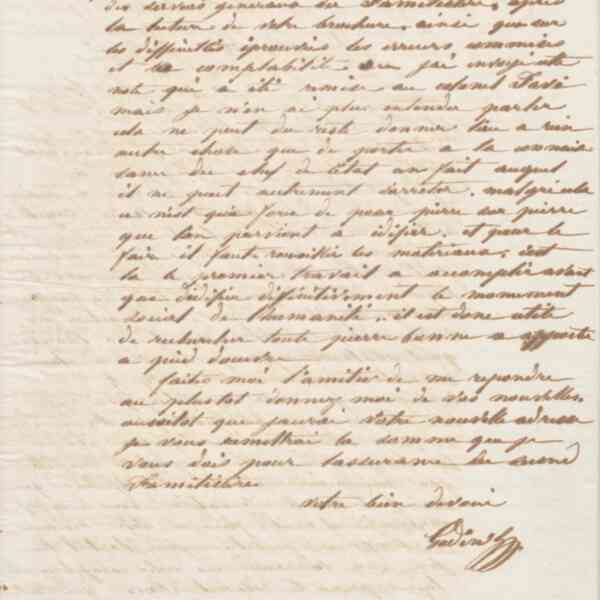 des services généraux du Familistère, après
la lecture de votre brochure, ainsi que sur
les difficultés éprouvées les erreurs commises
et la comptabilité. j'ai envoyé cette
note qui a été remise au colonel Favé
mais je n'en ai plus entendu parler
cela ne peut du reste donner lieu a rien
autre chose que de porter a la connais
sance du chef de l'état un fait auquel
il ne peut autrement s'arrêter. malgré cela
ce n'est qu'a force de poser pierre sur pierre
que l'on parvient à édifier. et pour le
faire il faut recueillir les matériaux, c'est
la le premier travail a accomplir avant
que d'édifier définitivement le monument
social de l'humanité. il est donc utile
de rechercher toute pierre bonne a apporter
a pied d'œuvre
faites moi l'amitié de me repondre
au plustot donnez moi de vos nouvelles.
aussitot que j'aurai votre nouvelle adresse
je vous remettrai la somme que je
vous dois pour l'assurance du
Familistère
votre bien dévoué
Godin